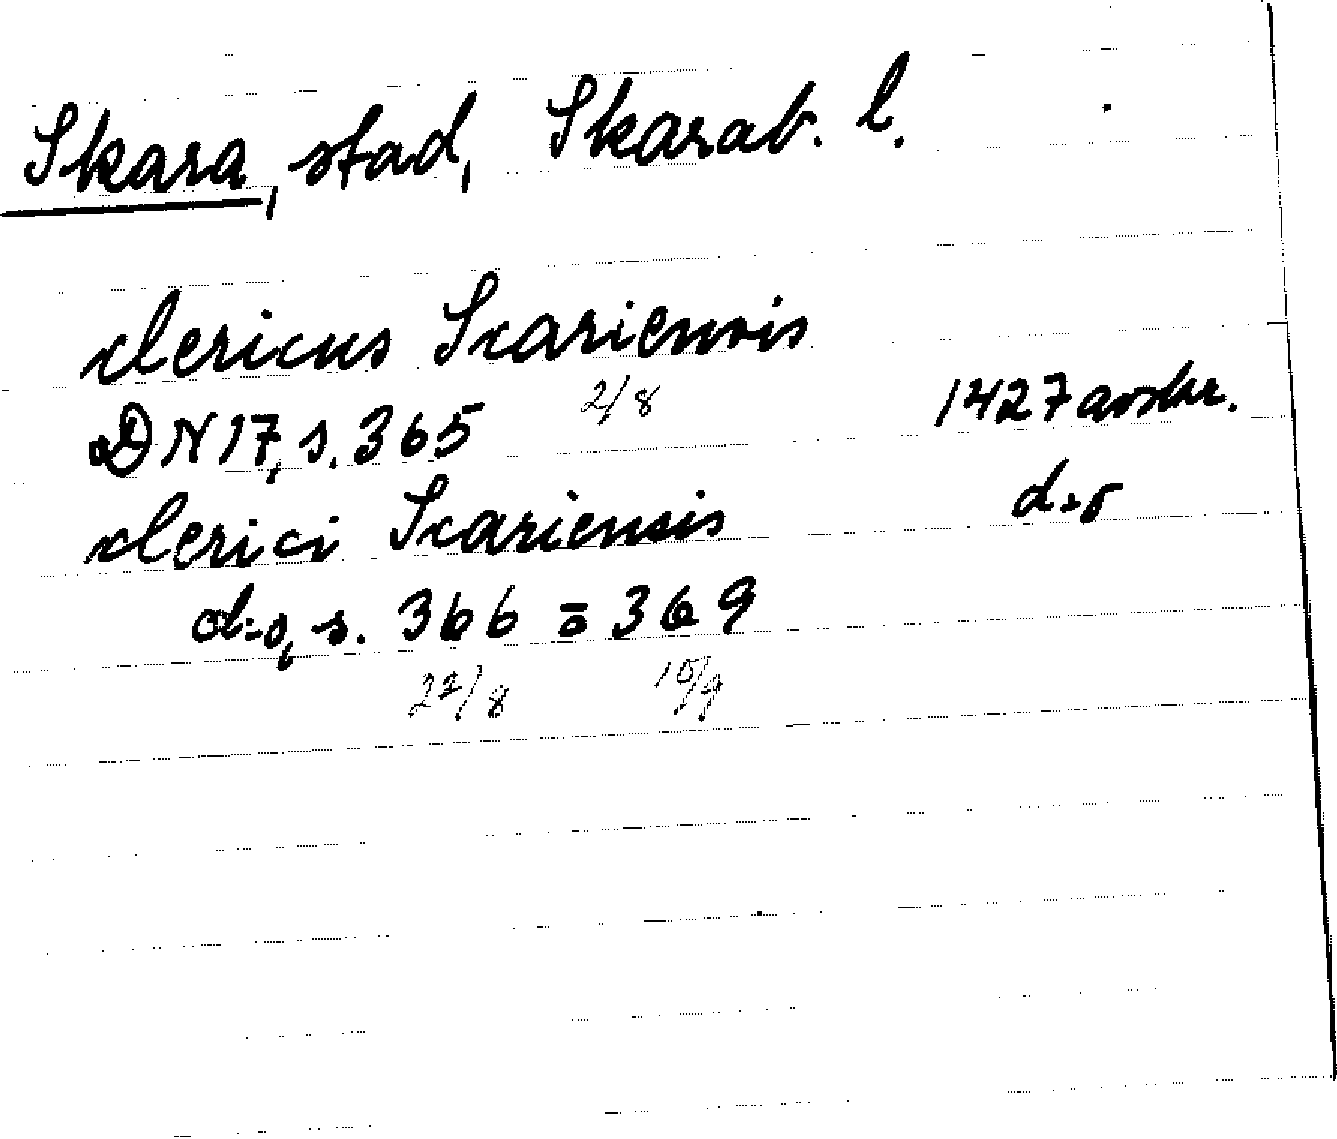 Skara, stad, Skarab. l.
clericus Scariensis
DN 17, s. 365 2/8 1427 avskr.
clerici Scariensis d:o
d:o, s. 366 = 369
22/8 15/9